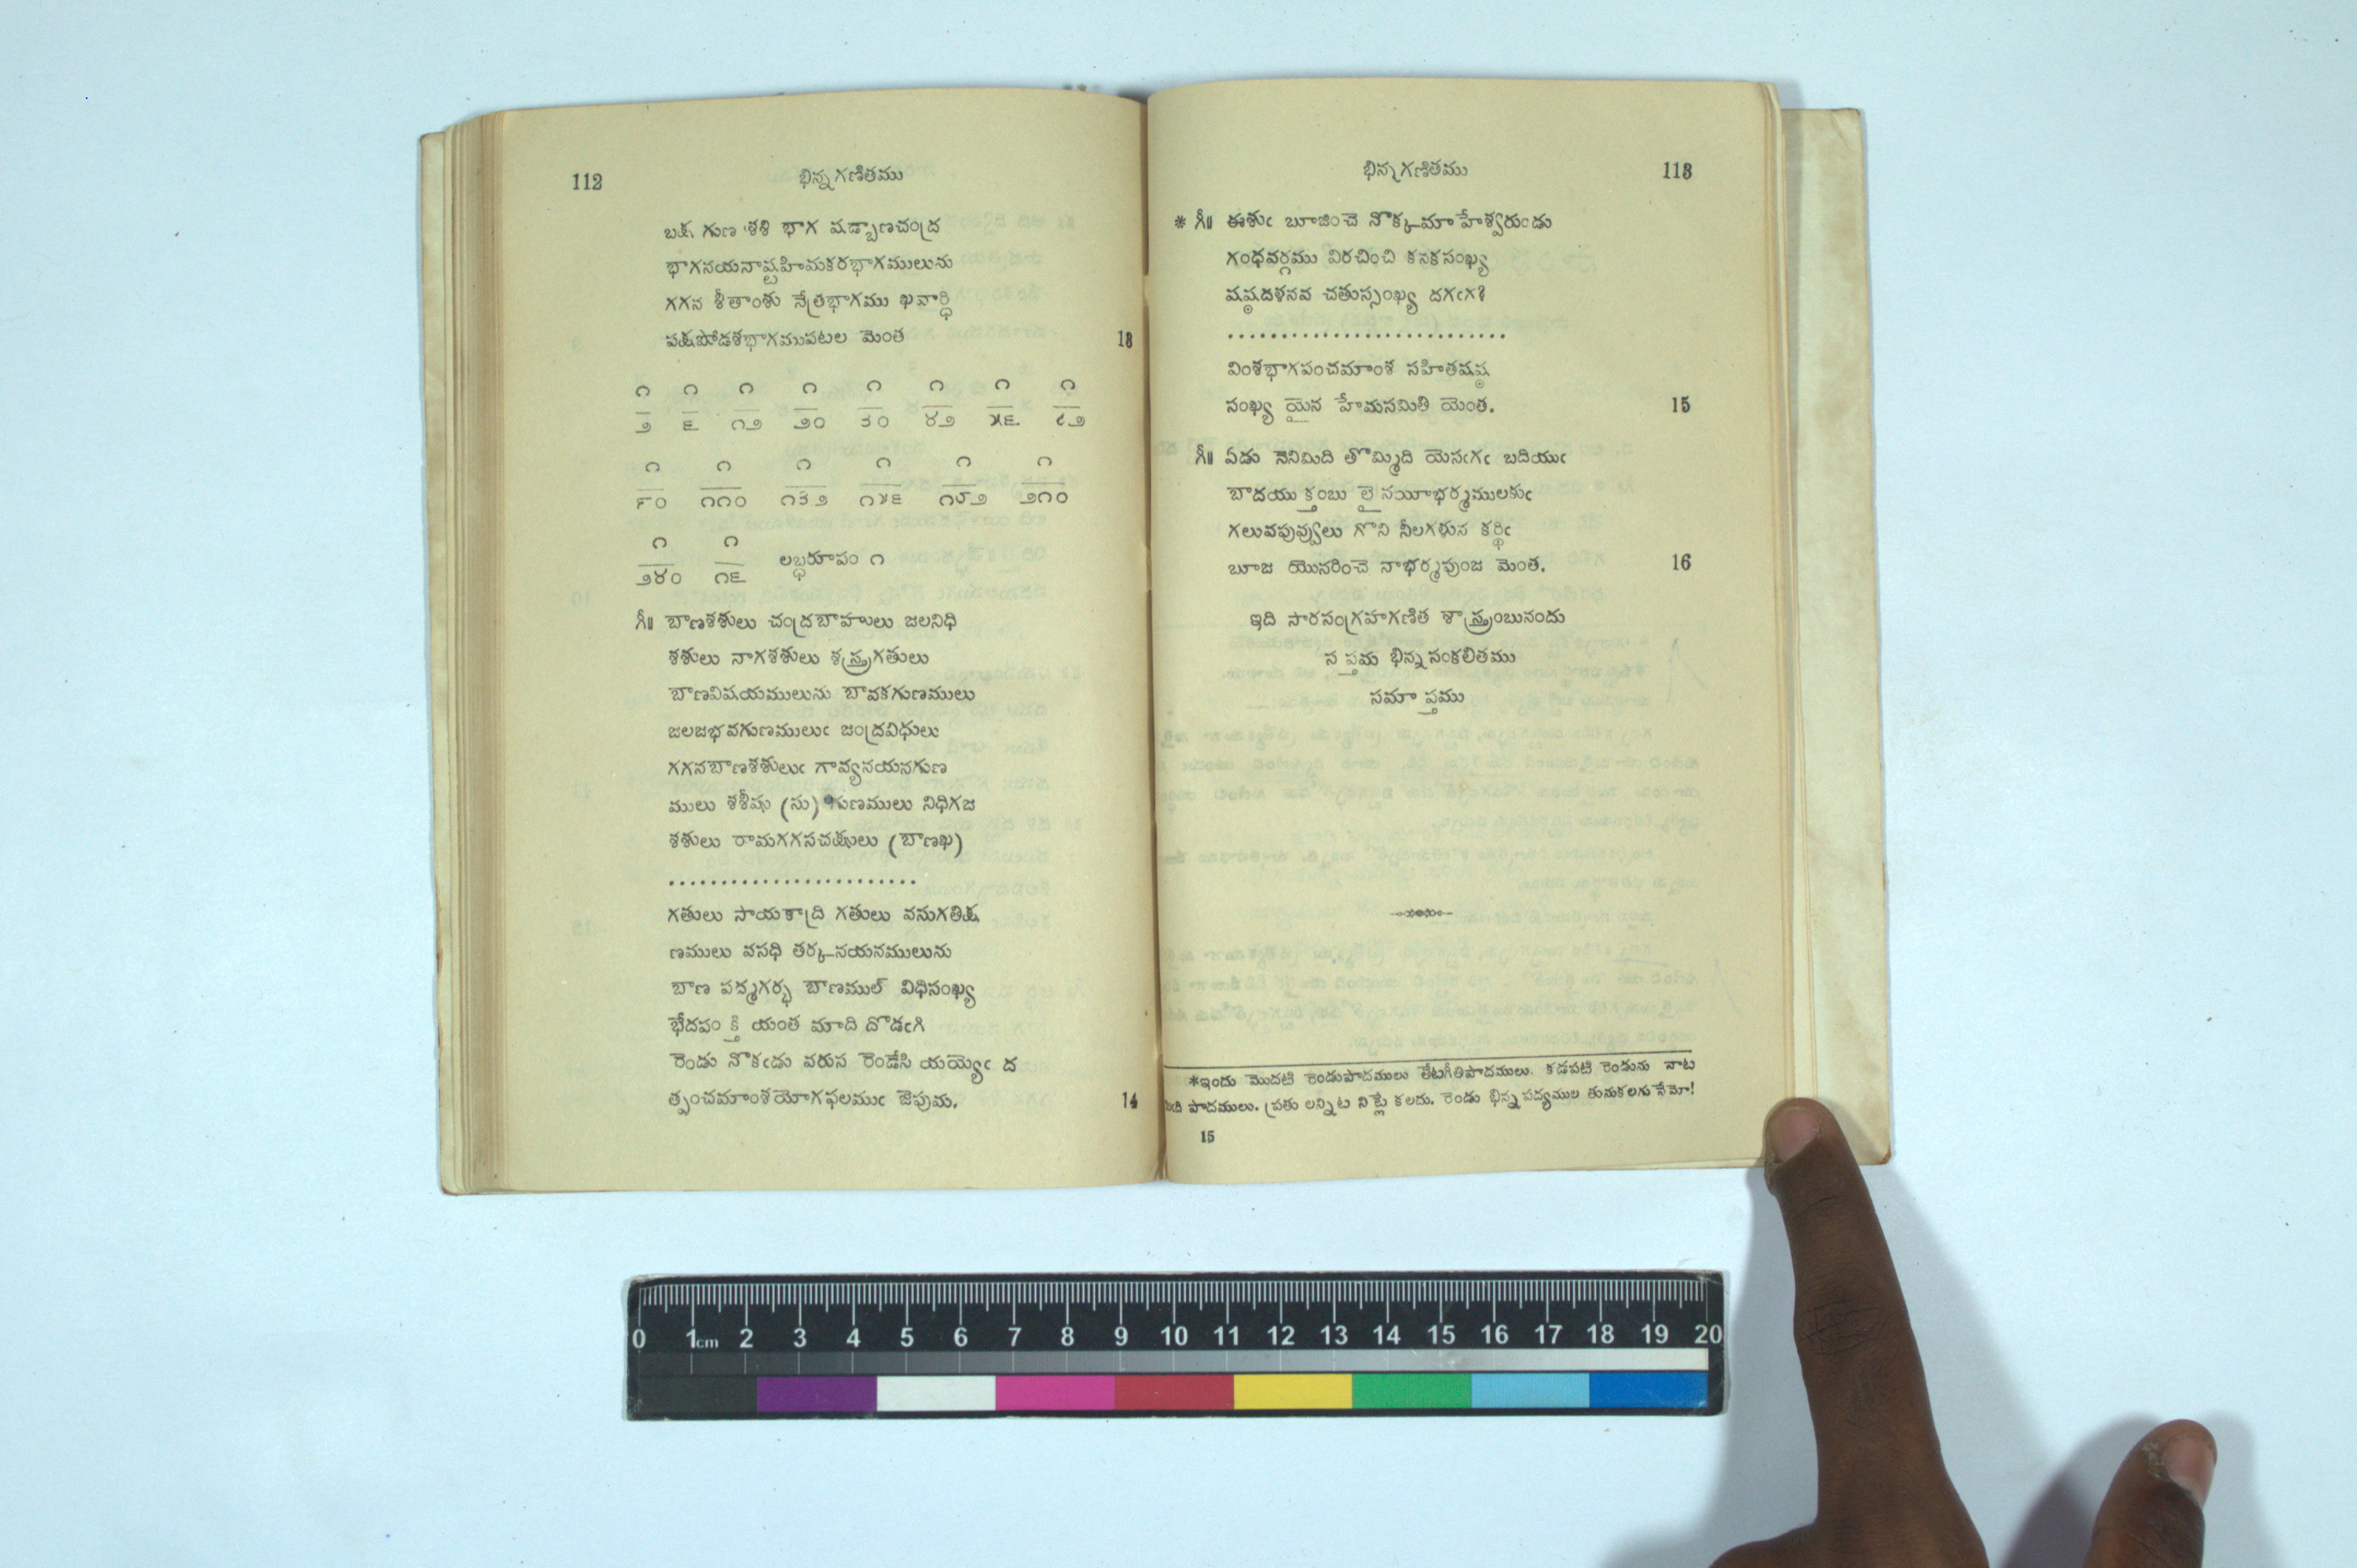 112 భిన్నగణితము
బక్ష గుణ శశి భాగ షడ్బాణచంద్ర
భాగనయనాష్టహిమకరభాగములును
గగన శీతాంశు నేత్రభాగము ఖవార్ధి
పక్షషోడశభాగముపటల మెంత 13
౧ ౧ ౧ ౧ ౧ ౧ ౧ ౧
౨ ౬ ౧౨ ౨౦ ౩౦ ౪౨ ౫౬ ౭౨
౧ ౧ ౧ ౧ ౧ ౧
౯౦ ౧౧౦ ౧౩౨ ౧౫౬ ౧౮౨ ౨౧౦
౧ ౧
౨౪౦ ౧౬ లబ్ధరూపం ౧
గీ॥ బాణశశులు చంద్రబాహులు జలనిధి
శశులు నాగశశులు శస్త్రగతులు
బాణవిషయములును బావకగుణములు
జలజభవగుణములుఁ జంద్రవిధులు
గగనబాణశశులుఁ గావ్యనయనగుణ
ములు శశీషు (సు) గుణములు నిధిగజ
శశులు రామగగనచక్షులు (బాణఖ)
........................
గతులు సాయకాద్రి గతులు వసుగతిక్ష
ణములు వసధి తర్కనయనములును
బాణ పద్మగర్భ బాణముల్ విధిసంఖ్య
భేదపంక్తి యంత మాది దొడఁగి
రెండు నొకఁడు వరుస రెండేసి యయ్యెఁ ద
త్పంచమాంశయోగఫలముఁ జెపుమ. 14
భిన్నగణితము 113
* గీ॥ ఈశుఁ బూజించె నొక్కమాహేశ్వరుండు
గంధవర్గము విరచించి కనకసంఖ్య
షష్ఠదశనవ చతుస్సంఖ్య దగఁగ?
...........................
వింశభాగపంచమాంశ సహితషష్ఠ
సంఖ్య యైన హేమసమితి యెంత. 15
గీ॥ ఏడు నెనిమిది తొమ్మిది యెసఁగఁ బదియుఁ
బాదయుక్తంబు లైనయీభర్మములకుఁ
గలువపువ్వులు గొని నీలగళున కర్థిఁ
బూజ యొనరించె నాభర్మపుంజ మెంత. 16
ఇది సారసంగ్రహగణిత శాస్త్రంబునందు
సప్తమ భిన్నసంకలితము
సమాప్తము
*ఇందు మొదటి రెండుపాదములు తేటగీతిపాదములు. కడపటి రెండును నాట
పాదములు. ప్రతు లన్నిట నిట్లే కలదు. రెండు భిన్నపద్యముల తునుకలగునేమో!
15